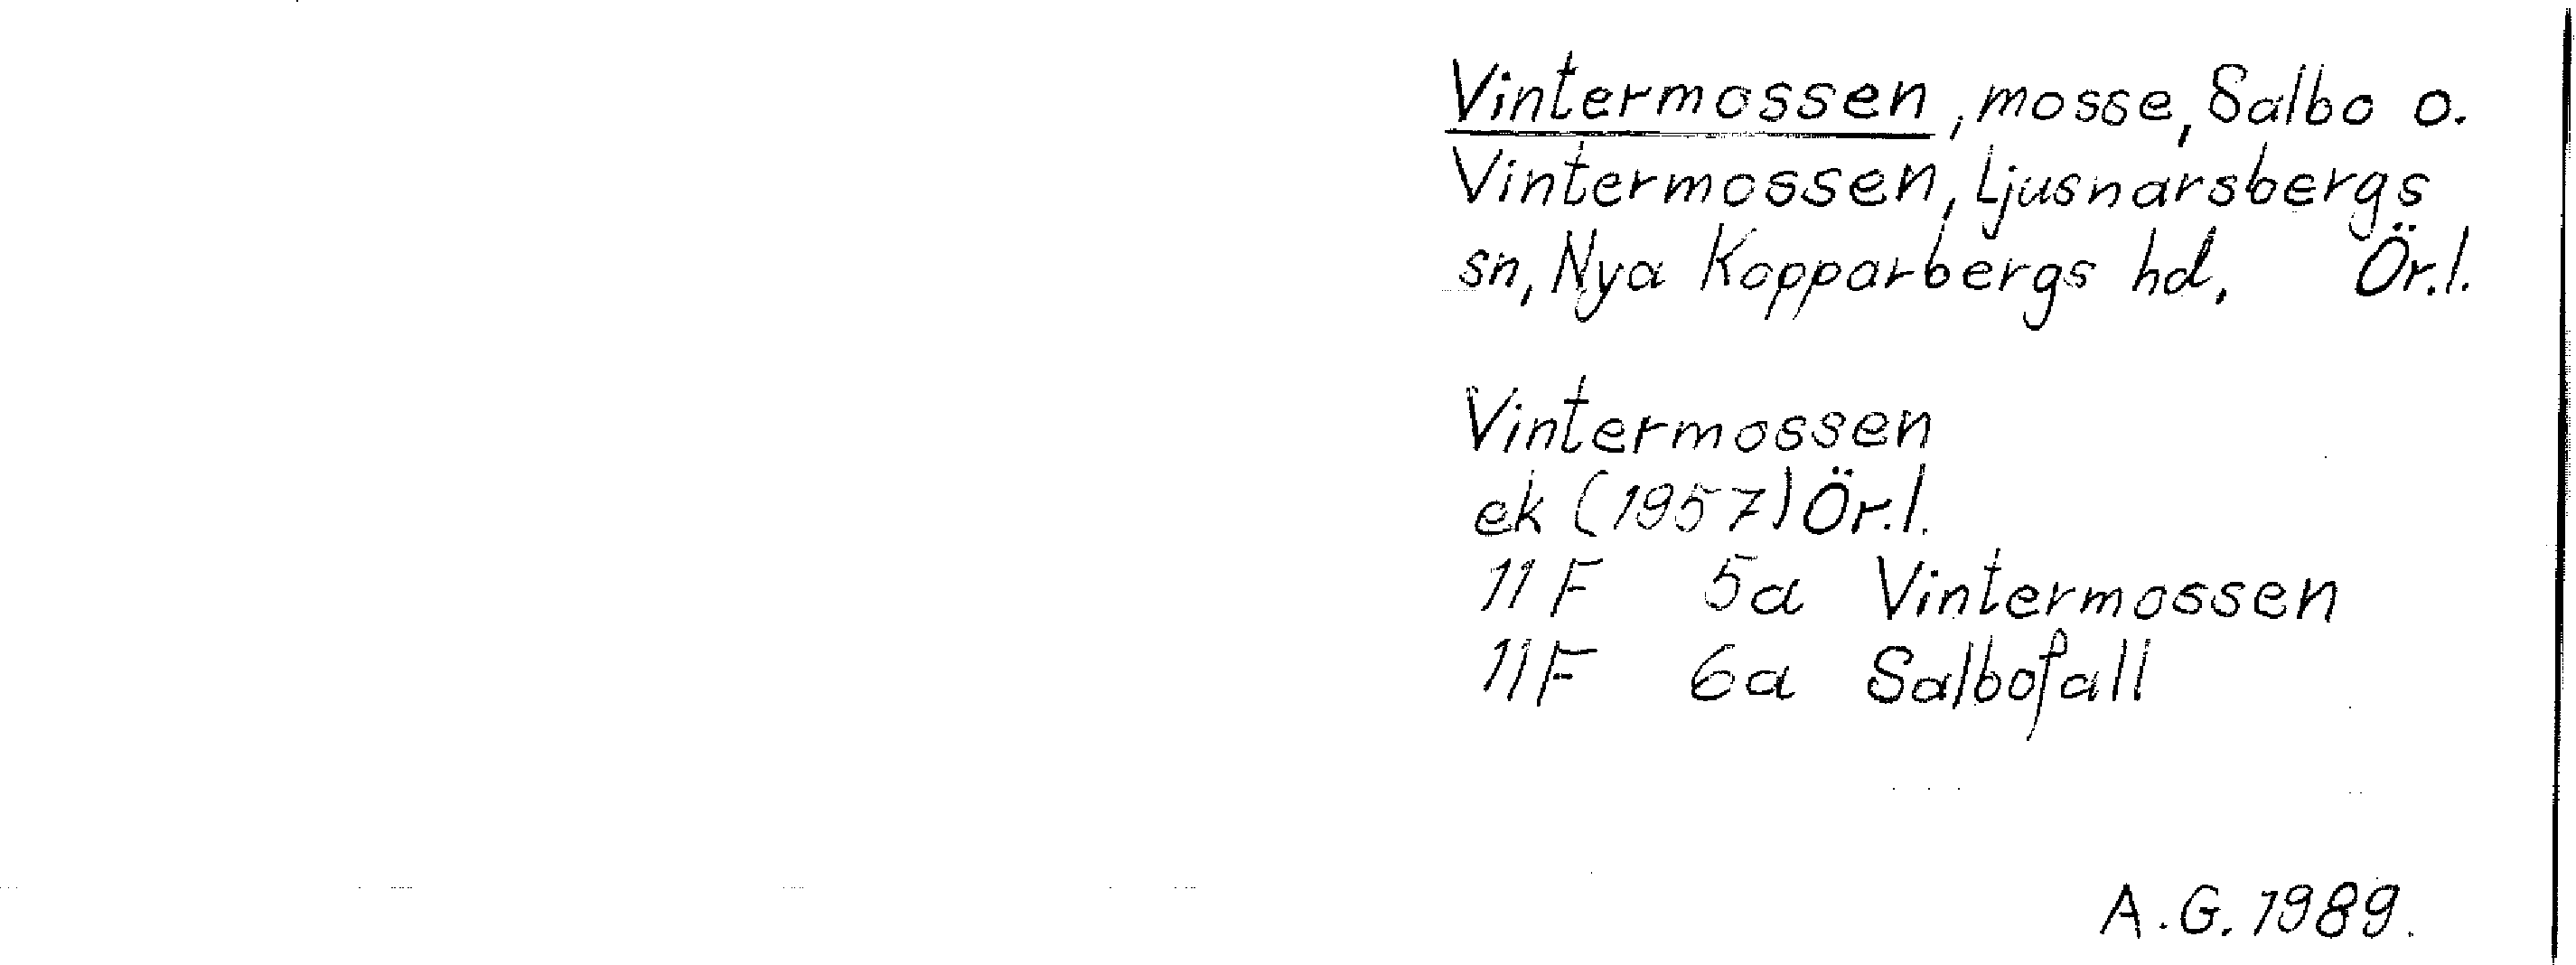 Vintermossen, mosse, Salbo o.
Vintermossen, Ljusnarsbergs
sn, Nya Kopparbergs hd, Ör.l.
Vintermossen
ek (1957) Ör.l.
11F 5a Vintermossen
11F 6a Salbofall
A.G. 1989.